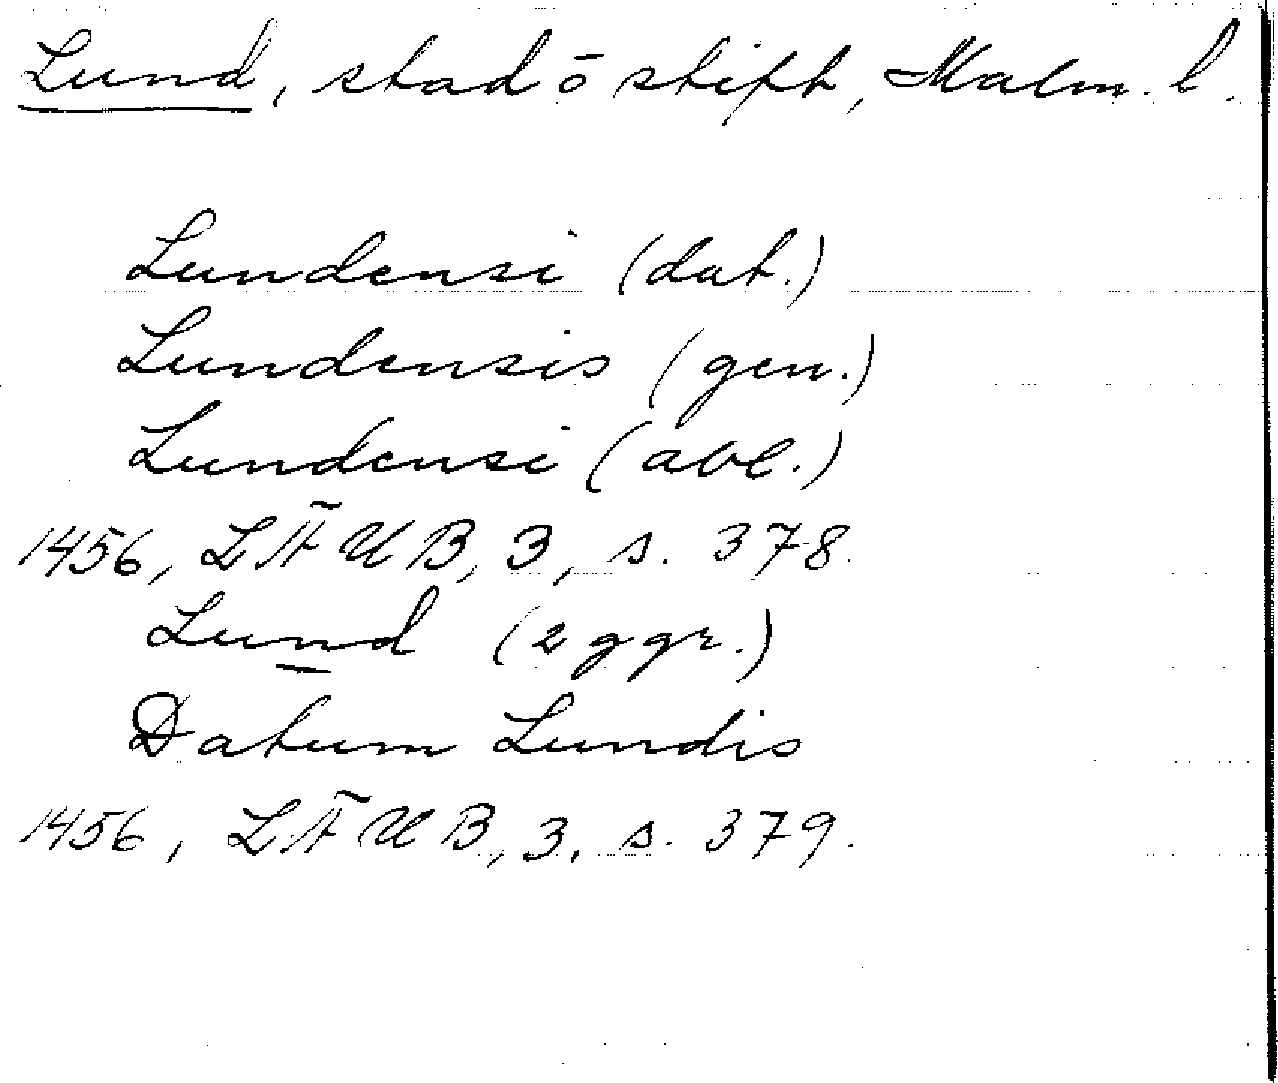 Lund, stad o stift, Malm. l.
Lundensi (dat.)
Lundensis (gen.)
Lundensi (abl.)
1456, LÄUB, 3, s. 378.
Lund (2 ggr.)
Datum Lundis
1456, LÄUB, 3, s. 379.